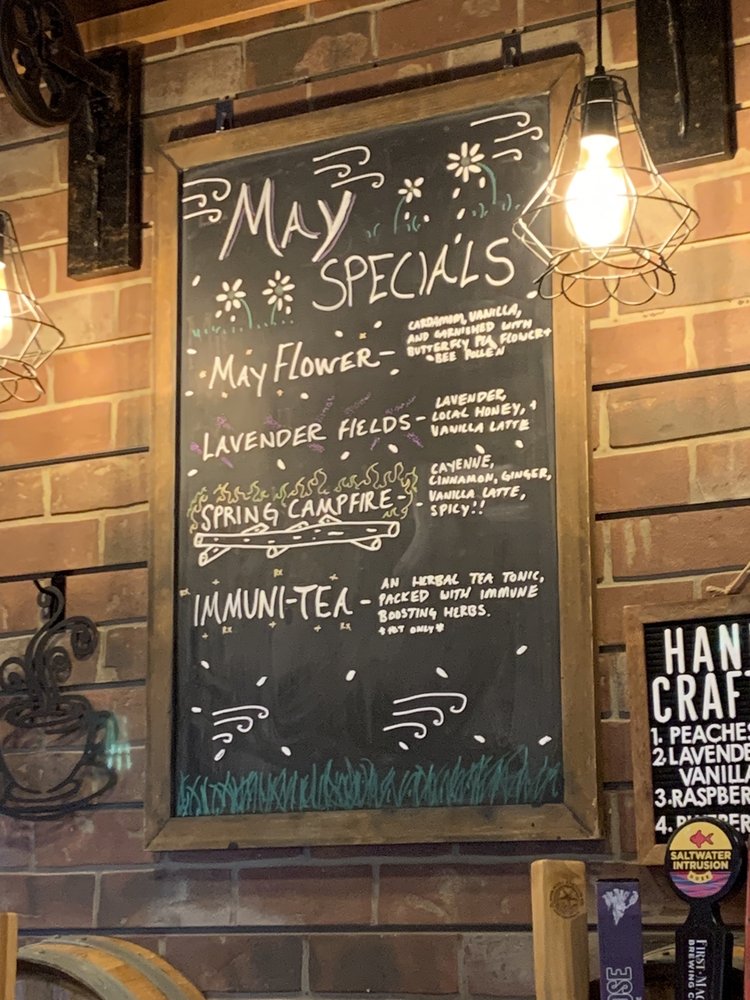 MAY
SPECIALS
MAY FLOWER -
CARDAMOM, VANILLA,
AND GARNISHED WITH
BUTTERFLY PEA FLOWER +
BEE POLLEN
LAVENDER FIELDS -
LAVENDER,
LOCAL HONEY, +
VANILLA LATTE
SPRING CAMPFIRE -
CAYENNE,
CINNAMON, GINGER,
VANILLA LATTE,
SPICY!!
IMMUNI-TEA -
AN HERBAL TEA TONIC,
PACKED WITH IMMUNE
BOOSTING HERBS.
*HOT ONLY*
RX
RX
RX
RX
HAN
CRAF
1. PEACHES
2. LAVENDE
VANILLA
3. RASPBER
4.
SALTWATER
INTRUSION
GOSE
FIRST MAG
BREWING C
OSE